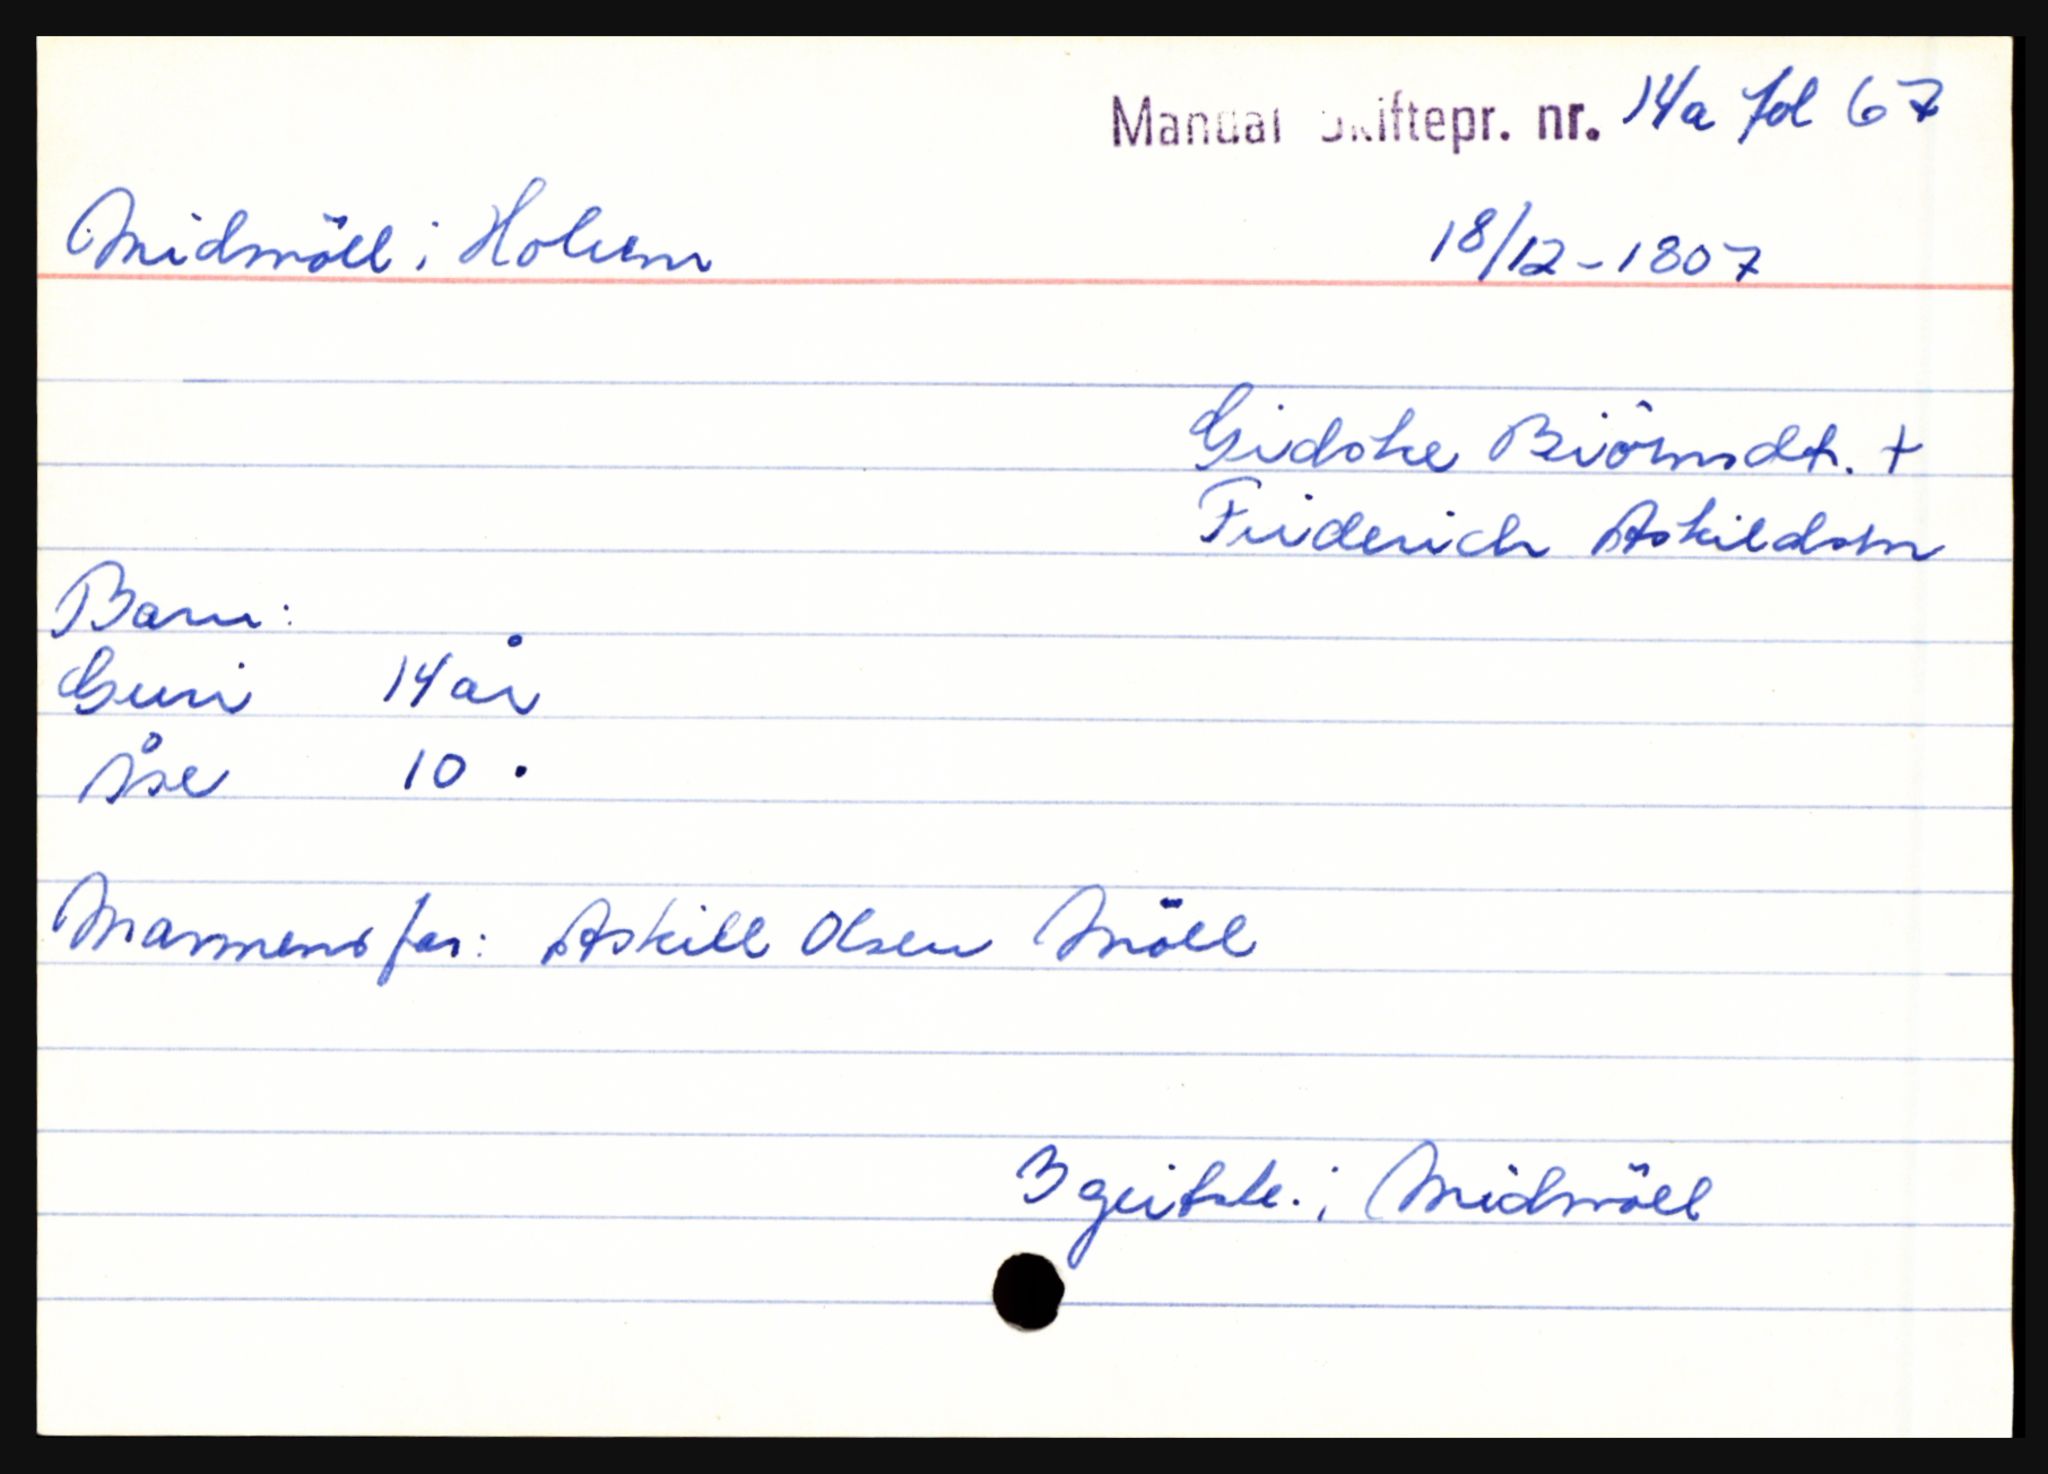 Mandal Skiftepr. nr. 14a fol 67
Midmöll i Holum 18/12-1807
Gidske Biörnsdt. +
Friderich Askildsen
Barn:
Guri 14 år
Åse 10 "
Mannens far: Askill Olsen Möll
3 geitsk. i Midmöll